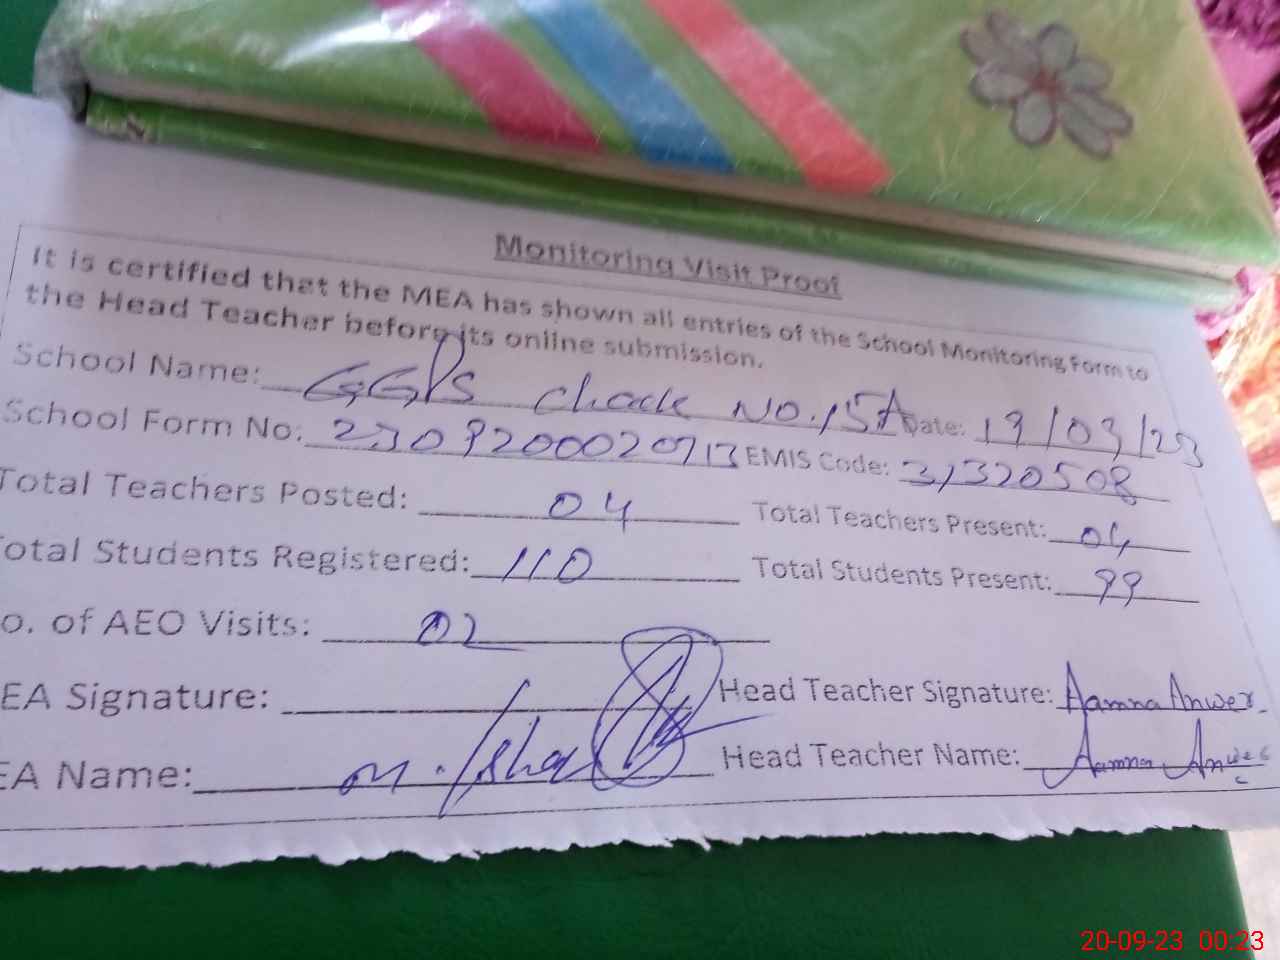 Monitoring Visit Proof
It is certified that the MEA has shown all entries of the School Monitoring Form to
the Head Teacher before its online submission.
School Name: GGPS Chack No.15A Date: 19/09/23
School Form No: 2309200020713 EMIS Code: 31320508
Total Teachers Posted: 04 Total Teachers Present: 04
Total Students Registered: 110 Total Students Present: 99
o. of AEO Visits: 02
EA Signature: Head Teacher Signature: Aamna Anwer
EA Name: M. Head Teacher Name: Aamna Anwer
20-09-23 00:23